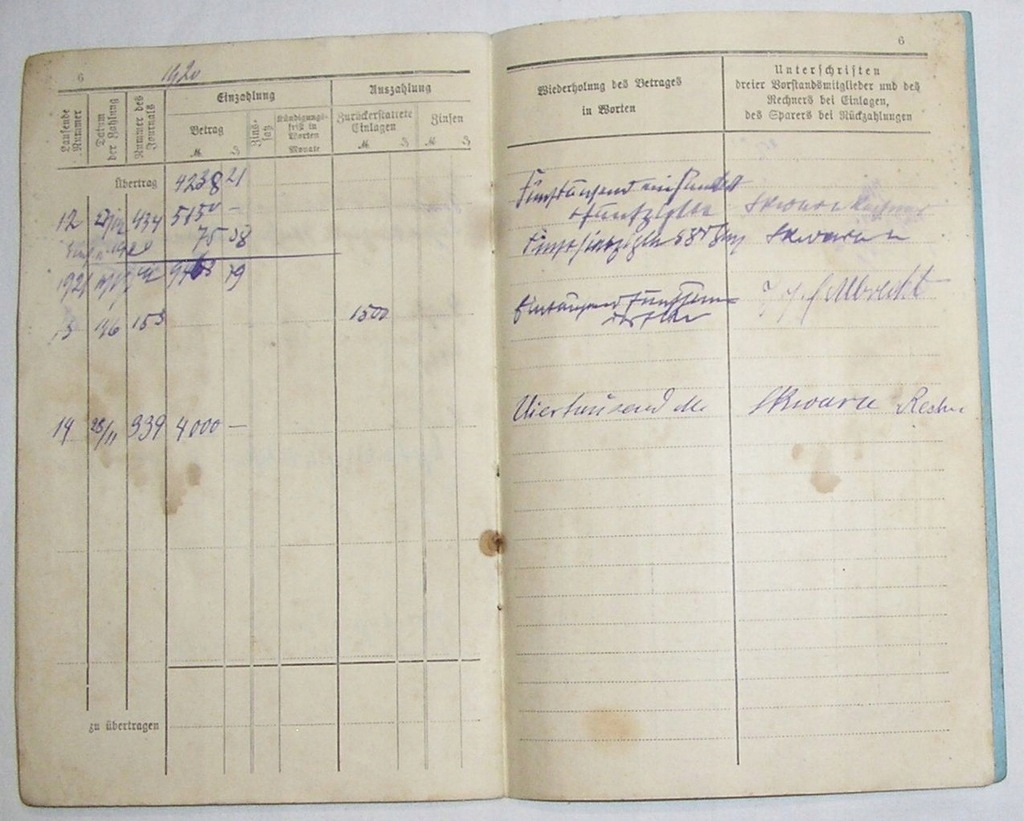 6
1920
Laufende Nummer
Datum der Zahlung
Nummer des Journals
Einzahlung
Betrag
ℳ ₰
Zins-
satz
Kündigungs-
frist in
Worten
Monate
Auszahlung
Zurückerstattete
Einlagen
ℳ ₰
Zinsen
ℳ ₰
Übertrag 4238 21
12 434 5150 —
75 58
1921 79
13 1/6 153 1500
14 23/11 939 4000 —
zu übertragen
6
Wiederholung des Betrages
in Worten
Unterschriften
dreier Vorstandsmitglieder und des
Rechners bei Einlagen,
des Sparers bei Rückzahlungen
Fünftausend einhundert
Skwara
Skwara
Eintausend Fünfhun-
Albrecht
Viertausend M. Skwara Rechn